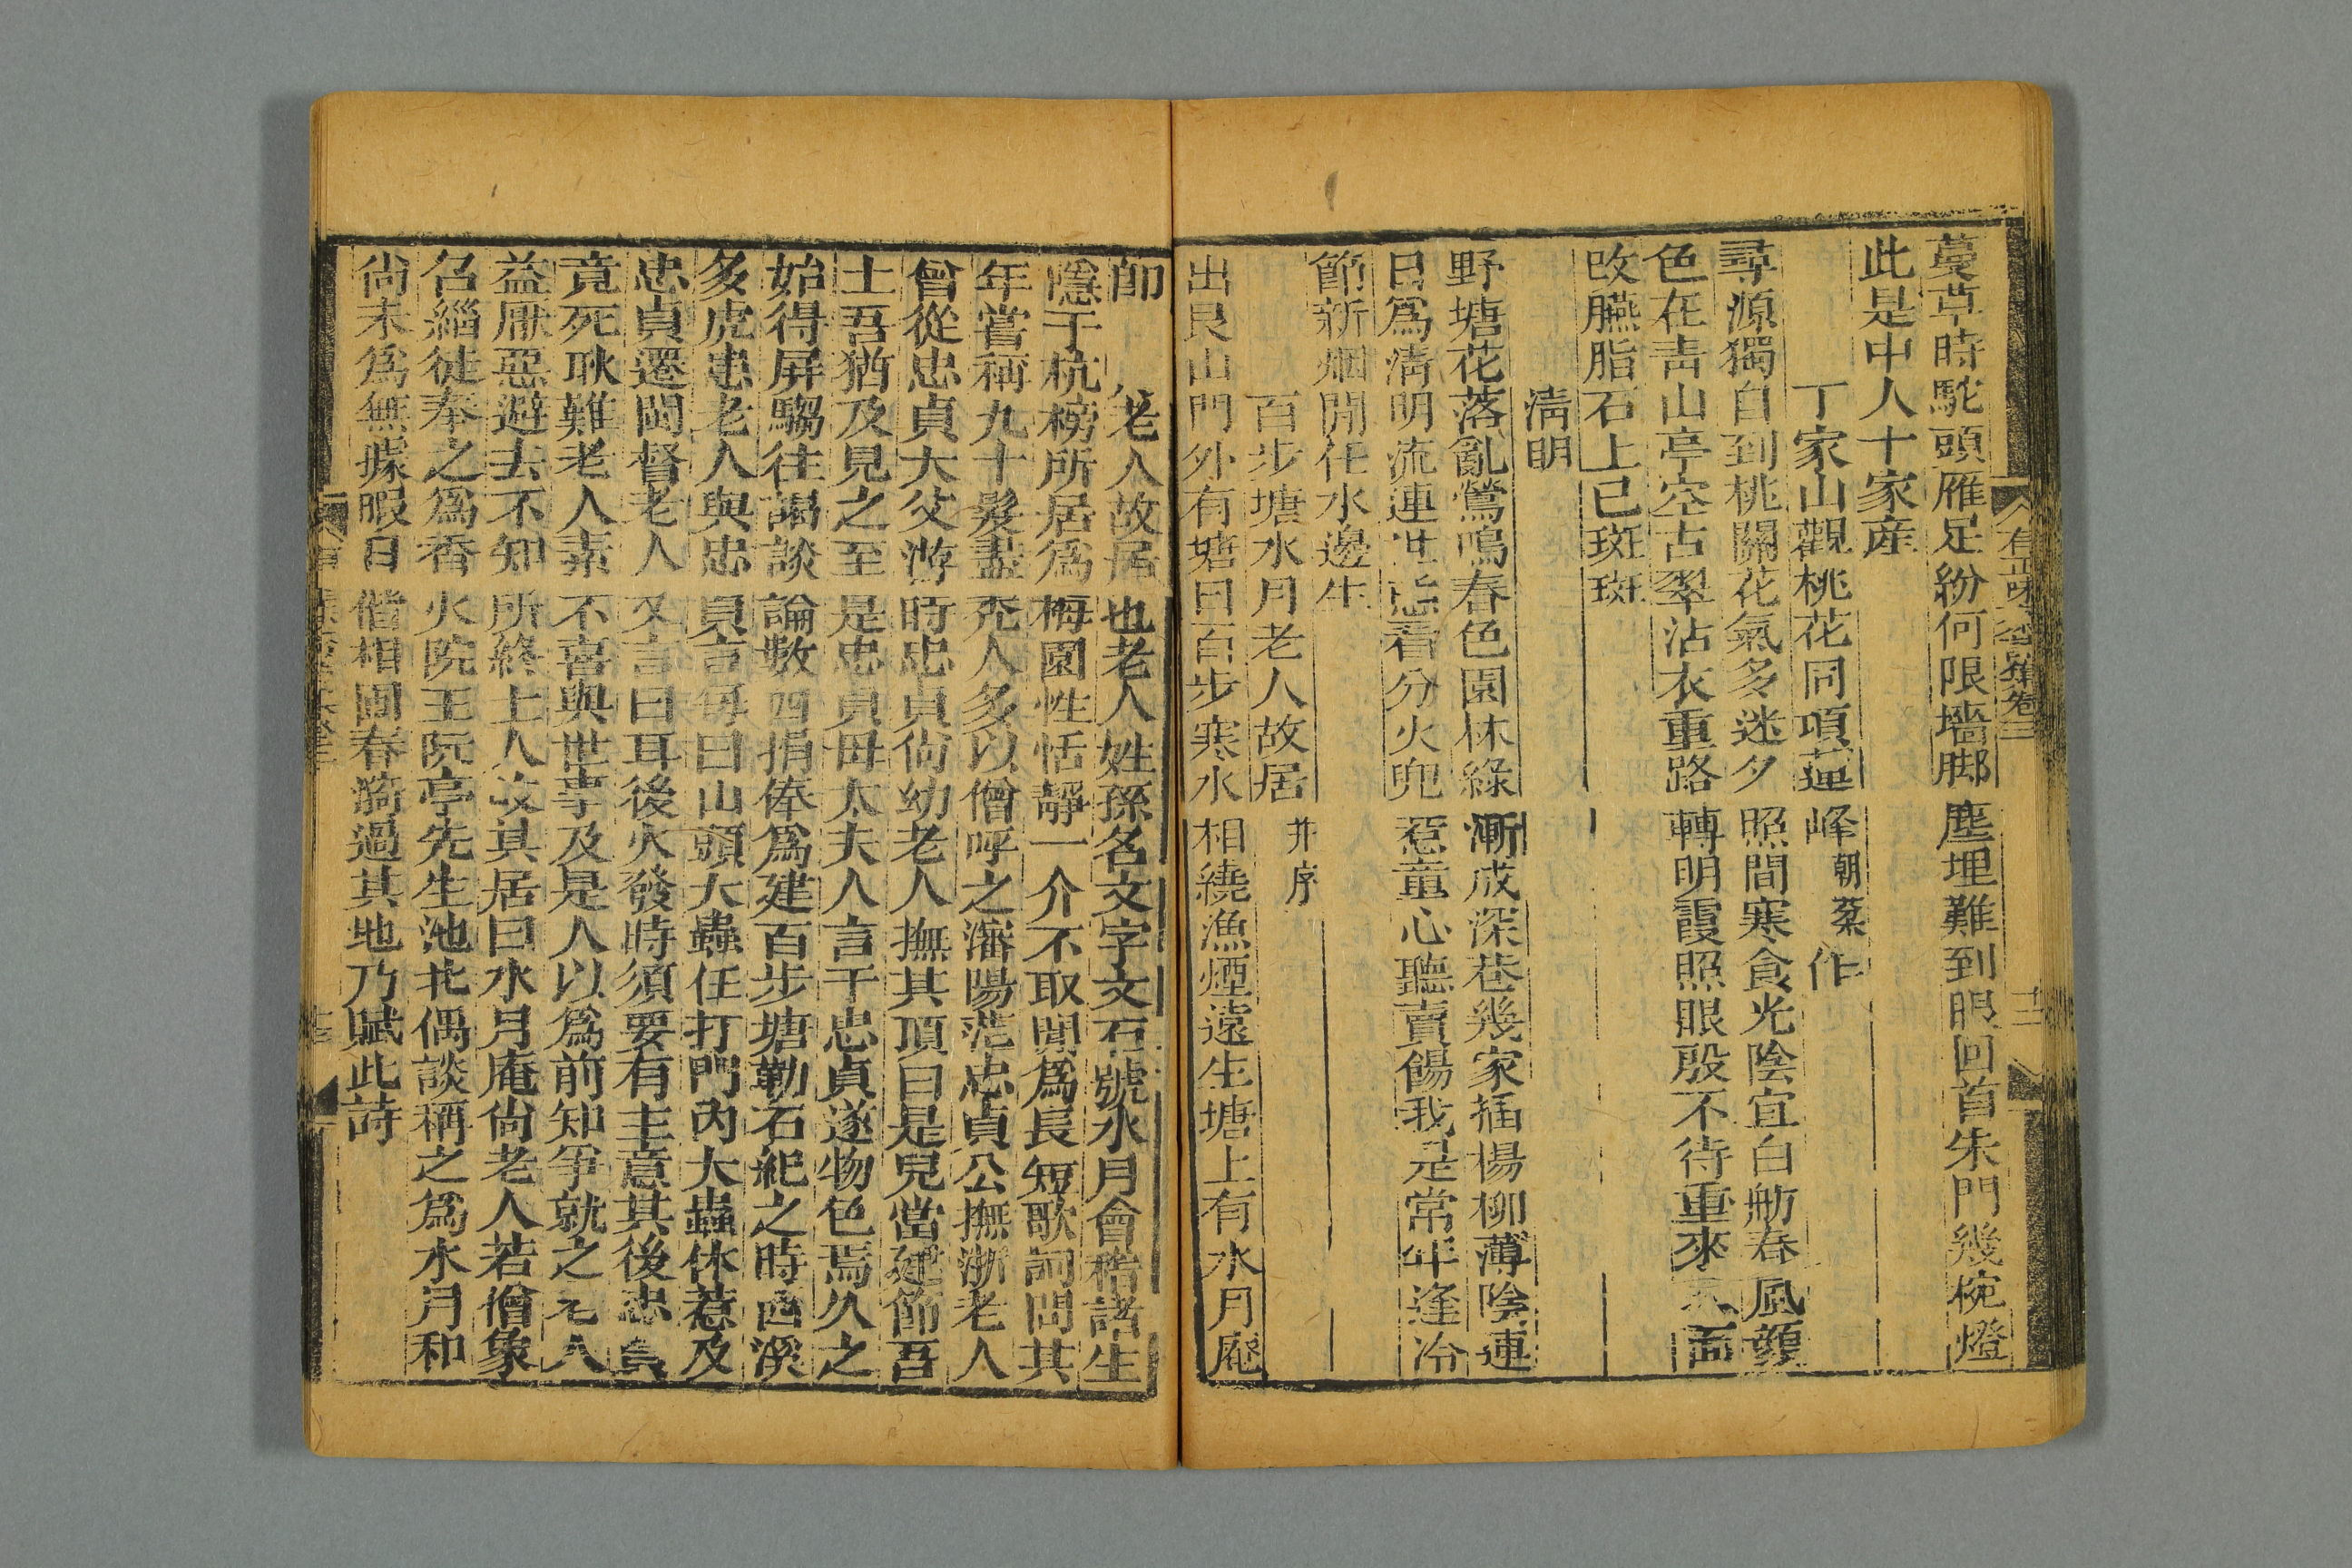 蔓草時駝頭雁足紛何限墻脚塵埋難到眼回首朱門幾椀燈
此是中人十家産
丁家山觀桃花同項蓮峰朝棻作
尋源獨自到桃關花氣多迷夕照間寒食光陰宜白舫春風顔
色在靑山亭空古翠沾衣重路轉明霞照眼殷不待重來人面
改臙脂石上已斑斑
淸明
野塘花落亂鶯鳴春色園林綠漸成深巷幾家插楊柳薄陰連
日爲淸明流連世態看分火兜惹童心聽賣餳我是常年逢冷
節新烟閒在水邊生
百步塘水月老人故居幷序
出艮山門外有塘曰百步寒水相繞漁煙遠生塘上有水月庵
卽老人故居也老人姓孫名文字文石號水月會稽諸生
隱于杭榜所居爲梅園性恬靜一介不取閒爲長短歌詞問其
年嘗稱九十髮盡禿人多以僧呼之瀋陽范忠貞公撫浙老人
曾從忠貞大父游時忠貞尙幼老人撫其頂曰是兒當建節吾
土吾猶及見之至是忠貞母太夫人言于忠貞遂物色焉久之
始得屏騶往謁談論數四捐俸爲建百步塘勒石紀之時西溪
多虎患老人與忠貞言每曰山頭大蟲任打門內大蟲休惹及
忠貞遷閩督老人又言曰耳後火發時須要有主意其後忠貞
竟死耿難老人素不喜與世事及是人以爲前知爭就之老人
益厭惡避去不知所終土人汝其居曰水月庵尙老人若僧象
召緇徒奉之爲香火院王阮亭先生池北偶談稱之爲水月和
尙未爲無據暇日偕相圃春漪過其地乃賦此詩
有正味齋集卷三
十二